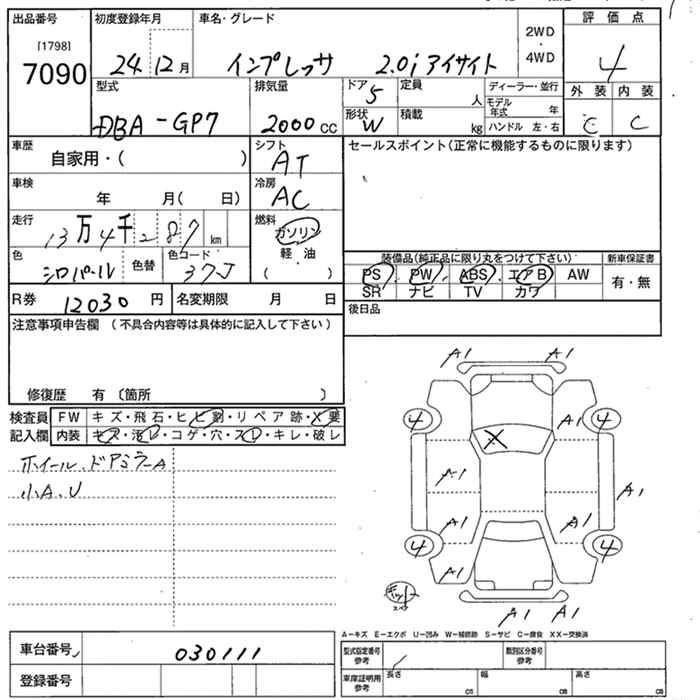 出品番号 初度登録年月 車名・グレード 2WD・4WD 評価点
[1798]
7090 24 12月 インプレッサ 2.0i アイサイト 4
型式 排気量 ドア 5 定員 人 ディーラー・並行 外装 内装
DBA-GP7 2000cc 形状 W 積載 kg モデル年式 年 C C
ハンドル 左・右
車歴 自家用・( ) シフト AT セールスポイント(正常に機能するものに限ります)
車検 年 月( 日) 冷房 AC
走行 13万4千287km 燃料 ガソリン
軽・油
( )
色 シロパール 色替 色コード 37J
装備品(純正品に限り丸をつけて下さい) 新車保証書
PS PW ABS エアB AW 有・無
SR ナビ TV カワ
R券 12030円 名変期限 月 日 後日品
注意事項申告欄 (不具合内容等は具体的に記入して下さい)
修復歴 有 〔箇所 〕
検査員記入欄 FW キズ・飛石・ヒビ割・リペア跡・X要
内装 キズ・汚レ・コゲ・穴・スレ・キレ・破レ
ホイール、ドアミラーA
小A、U
A1 A1
4 A1 4
X
A1 A1
A1 A1
4 4
A1
キット
スペア
A1 A1
A−キズ E−エクボ U−凹み W−補修跡 S−サビ C−腐食 XX−交換済
車台番号 030111
登録番号
型式指定番号参考 類別区分番号参考
車庫証明用参考 長さ cm 幅 cm 高さ cm